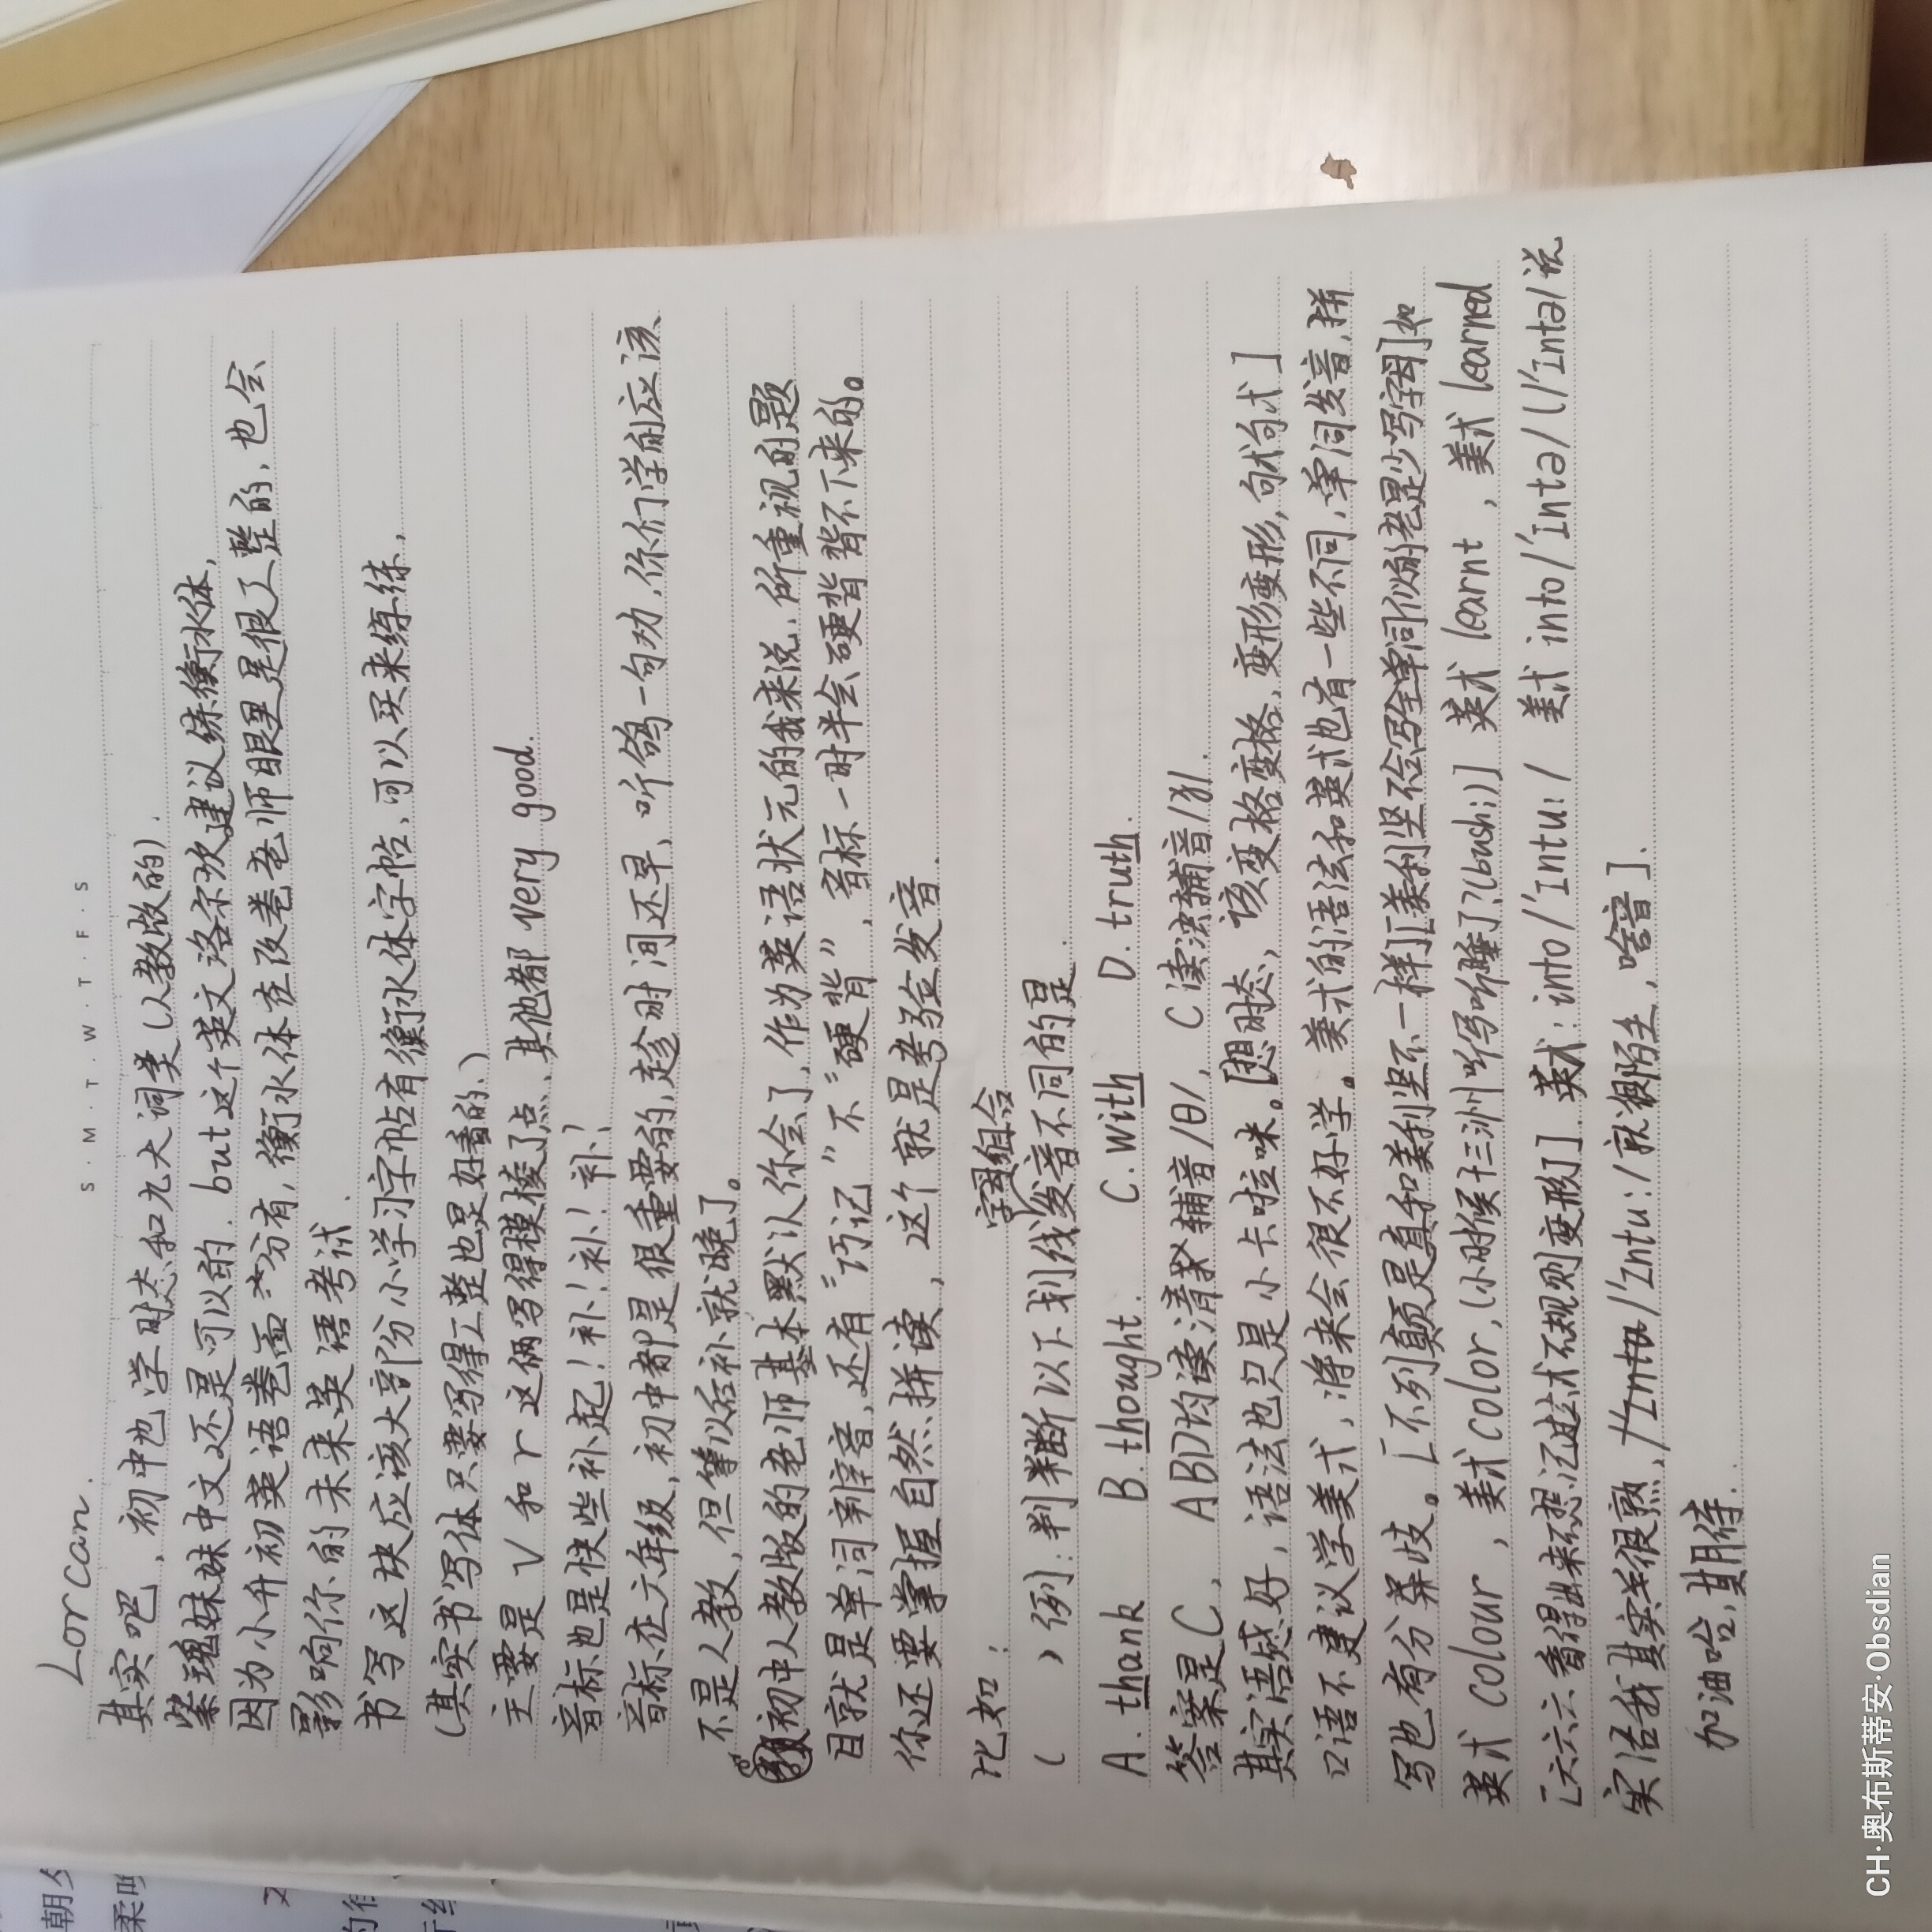 S · M · T · W · T · F · S
Lorcan.
其实吧，初中也学时态和九大词类(人教版的).
紫瑰妹妹中文还是可以的. but这个英文洛尔坎建议练衡水体,
因为小升初英语卷面分有,衡水体在改卷老师眼里是很工整的,也会
影响你的未来英语考试.
书写这块应该大部分小学习字帖有衡水体字帖,可以买来练练,
(其实书写体只要写得工整也是好看的、)
主要是 v 和 r 这俩写得模棱了点、其他都 very good.
音标也是快些补起！补！补！补！
音标在六年级,初中都是很重要的,趁时间还早、听鸽一句劝,你们学的应该
不是人教,但等以后补就晚了。
初中人教版的老师基本默认你会了,作为英语状元的我来说,所重视的题
目就是单词辨音,还有“巧记”不“硬背”,音标一时半会硬背背不下来的。
你还要掌握自然拼读,这个就是考验发音.
比如：
字母组合
( )例:判断以下划线发音不同的是.
A. thank B. thought. C. with D. truth.
答案是C, ABD均读清辅音/θ/, C读浊辅音/ð/.
其实语感好,语法也只是小卡啦咪。[想时态,该变格变格,变形变形,句式句式]
口语不建议学美式,将来会很不好学。美式的语法和英式也有一些不同,单词发音,拼
写也有分歧。[不列颠是真和美利坚不一样][美利坚不会写全单词似的老是少写字母]如
英式 colour , 美式 color,(小时候十三洲听写听睡了?(bushi)] 英式 learnt , 美式 learned
[六六六看得出来不想记过去式不规则变形了]. 英式: into/'Intu:/ 美式 into/'Intə/ (/'Intə/说
实话我其实不很熟,/'Intu:/就很陌生,啥音].
加油哈,期待.
CH·奥布斯蒂安·Obsdian
朝夕